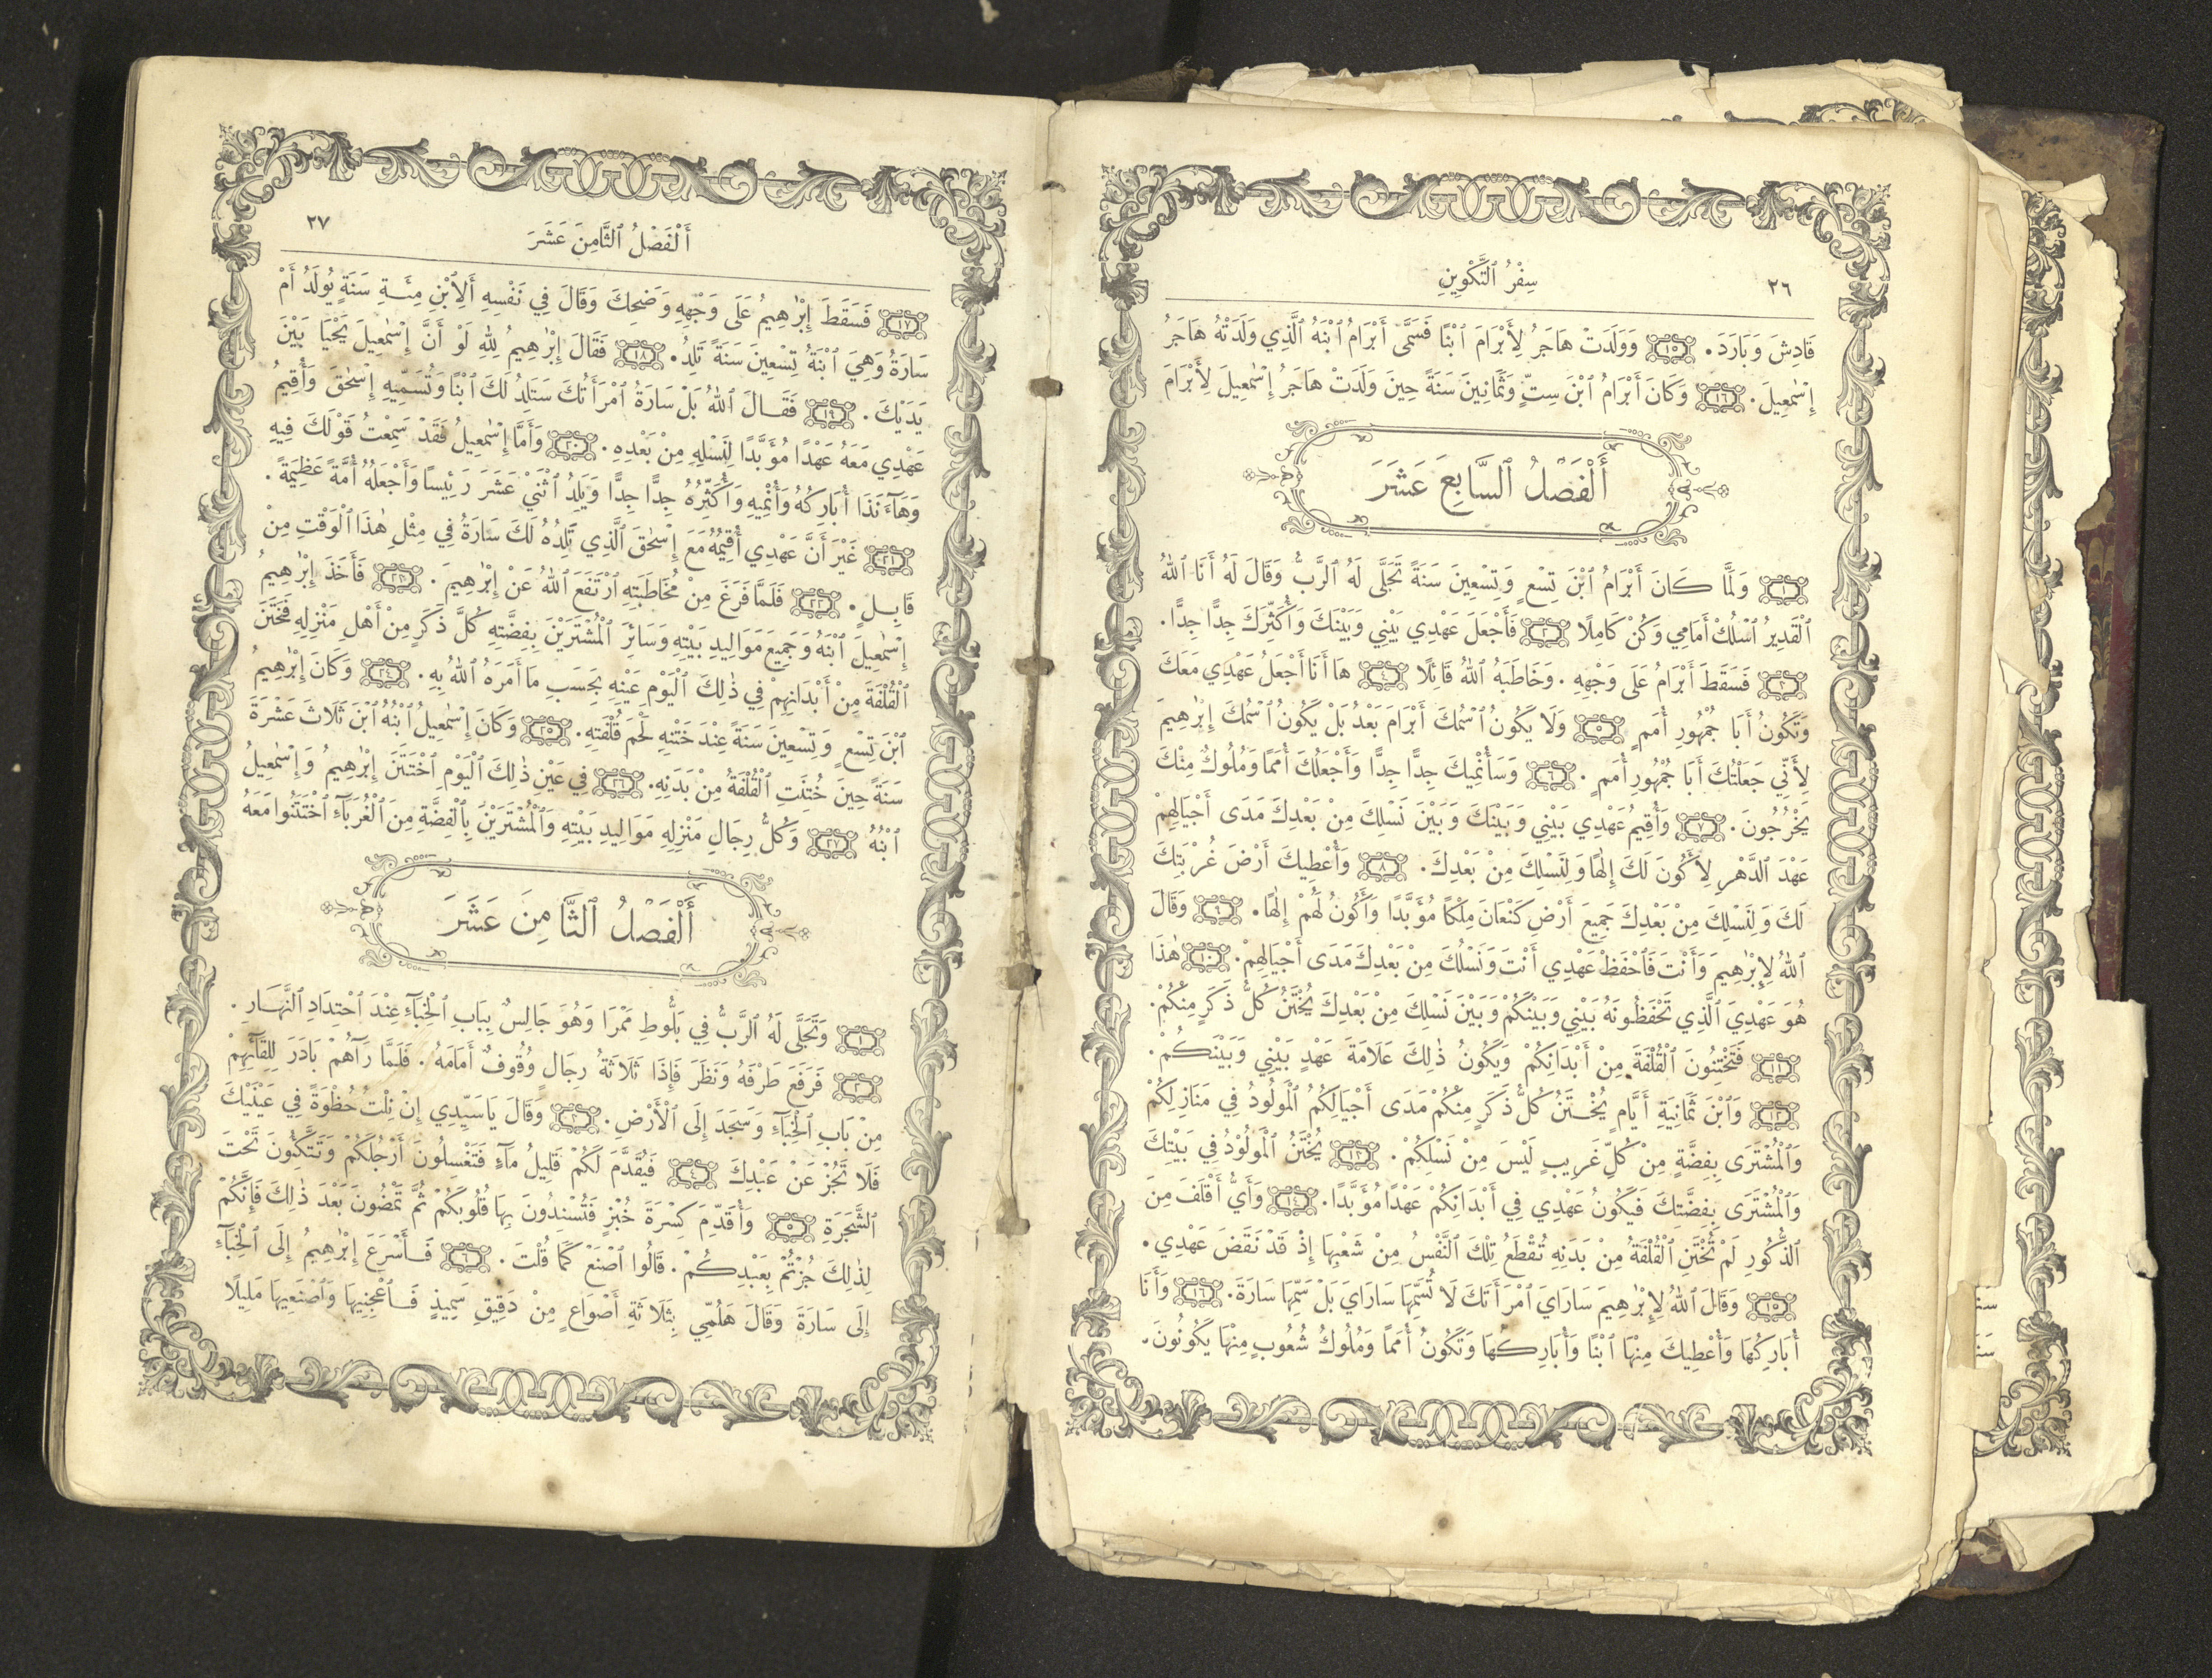 ٢٦
سِفْرُ ٱلتَّكْوِينِ
قَادِشَ وَبَارَدَ. ١٥ وَوَلَدَتْ هَاجَرُ لِأَبْرَامَ ٱبْنًا فَسَمَّى أَبْرَامُ ٱبْنَهُ ٱلَّذِي وَلَدَتْهُ هَاجَرُ
إِسْمٰعِيلَ. ١٦ وَكَانَ أَبْرَامُ ٱبْنَ سِتٍّ وَثَمَانِينَ سَنَةً حِينَ وَلَدَتْ هَاجَرُ إِسْمٰعِيلَ لِأَبْرَامَ
أَلْفَصْلُ ٱلسَّابِعَ عَشَرَ
١ وَلَمَّا كَانَ أَبْرَامُ ٱبْنَ تِسْعٍ وَتِسْعِينَ سَنَةً تَجَلَّى لَهُ ٱلرَّبُّ وَقَالَ لَهُ أَنَا ٱللهُ
ٱلْقَدِيرُ ٱسْلُكْ أَمَامِي وَكُنْ كَامِلًا ٢ فَأَجْعَلَ عَهْدِي بَيْنِي وَبَيْنَكَ وَأُكَثِّرَكَ جِدًّا جِدًّا.
٣ فَسَقَطَ أَبْرَامُ عَلَى وَجْهِهِ. وَخَاطَبَهُ ٱللهُ قَائِلًا ٤ هَا أَنَا أَجْعَلُ عَهْدِي مَعَكَ
وَتَكُونُ أَبَا جُمْهُورِ أُمَمٍ ٥ وَلَا يَكُونُ ٱسْمُكَ أَبْرَامَ بَعْدُ بَلْ يَكُونُ ٱسْمُكَ إِبْرٰهِيمَ
لِأَنِّي جَعَلْتُكَ أَبَا جُمْهُورِ أُمَمٍ. ٦ وَسَأُنْمِيكَ جِدًّا جِدًّا وَأَجْعَلُكَ أُمَمًا وَمُلُوكٌ مِنْكَ
يَخْرُجُونَ. ٧ وَأُقِيمُ عَهْدِي بَيْنِي وَبَيْنَكَ وَبَيْنَ نَسْلِكَ مِنْ بَعْدِكَ مَدَى أَجْيَالِهِمْ
عَهْدَ ٱلدَّهْرِ لِأَكُونَ لَكَ إِلٰهًا وَلِنَسْلِكَ مِنْ بَعْدِكَ. ٨ وَأُعْطِيكَ أَرْضَ غُرْبَتِكَ
لَكَ وَلِنَسْلِكَ مِنْ بَعْدِكَ جَمِيعَ أَرْضِ كَنْعَانَ مِلْكًا مُؤَبَّدًا وَأَكُونُ لَهُمْ إِلٰهًا. ٩ وَقَالَ
ٱللهُ لِإِبْرٰهِيمَ وَأَنْتَ فَٱحْفَظْ عَهْدِي أَنْتَ وَنَسْلُكَ مِنْ بَعْدِكَ مَدَى أَجْيَالِهِمْ. ١٠ هٰذَا
هُوَ عَهْدِيَ ٱلَّذِي تَحْفَظُونَهُ بَيْنِي وَبَيْنَكُمْ وَبَيْنَ نَسْلِكَ مِنْ بَعْدِكَ يُخْتَنُ كُلُّ ذَكَرٍ مِنْكُمْ.
١١ فَتَخْتِنُونَ ٱلْقُلْفَةَ مِنْ أَبْدَانِكُمْ وَيَكُونُ ذٰلِكَ عَلَامَةَ عَهْدٍ بَيْنِي وَبَيْنَكُمْ.
١٢ وَٱبْنَ ثَمَانِيَةِ أَيَّامٍ يُخْتَنُ كُلُّ ذَكَرٍ مِنْكُمْ مَدَى أَجْيَالِكُمُ ٱلْمَوْلُودُ فِي مَنَازِلِكُمْ
وَٱلْمُشْتَرَى بِفِضَّةٍ مِنْ كُلِّ غَرِيبٍ لَيْسَ مِنْ نَسْلِكُمْ. ١٣ يُخْتَنُ ٱلْمَوْلُودُ فِي بَيْتِكَ
وَٱلْمُشْتَرَى بِفِضَّتِكَ فَيَكُونُ عَهْدِي فِي أَبْدَانِكُمْ عَهْدًا مُؤَبَّدًا. ١٤ وَأَيُّ أَقْلَفَ مِنَ
ٱلذُّكُورِ لَمْ تُخْتَنِ ٱلْقُلْفَةُ مِنْ بَدَنِهِ تُقْطَعُ تِلْكَ ٱلنَّفْسُ مِنْ شَعْبِهَا إِذْ قَدْ نَقَضَ عَهْدِي.
١٥ وَقَالَ ٱللهُ لِإِبْرٰهِيمَ سَارَايَ ٱمْرَأَتَكَ لَا تُسَمِّهَا سَارَايَ بَلْ سَمِّهَا سَارَةَ. ١٦ وَأَنَا
أُبَارِكُهَا وَأُعْطِيكَ مِنْهَا ٱبْنًا وَأُبَارِكُهَا وَتَكُونُ أُمَمًا وَمُلُوكُ شُعُوبٍ مِنْهَا يَكُونُونَ.
أَلْفَصْلُ ٱلثَّامِنَ عَشَرَ
٢٧
١٧ فَسَقَطَ إِبْرٰهِيمُ عَلَى وَجْهِهِ وَضَحِكَ وَقَالَ فِي نَفْسِهِ أَلِٱبْنِ مِئَةِ سَنَةٍ يُولَدُ أَمْ
سَارَةُ وَهِيَ ٱبْنَةُ تِسْعِينَ سَنَةً تَلِدُ. ١٨ فَقَالَ إِبْرٰهِيمُ لِلهِ لَوْ أَنَّ إِسْمٰعِيلَ يَحْيَا بَيْنَ
يَدَيْكَ. ١٩ فَقَالَ ٱللهُ بَلْ سَارَةُ ٱمْرَأَتُكَ سَتَلِدُ لَكَ ٱبْنًا وَتُسَمِّيهِ إِسْحٰقَ وَأُقِيمُ
عَهْدِي مَعَهُ عَهْدًا مُؤَبَّدًا لِنَسْلِهِ مِنْ بَعْدِهِ. ٢٠ وَأَمَّا إِسْمٰعِيلُ فَقَدْ سَمِعْتُ قَوْلَكَ فِيهِ
وَهَآءَنَذَا أُبَارِكُهُ وَأُنْمِيهِ وَأُكَثِّرُهُ جِدًّا جِدًّا وَيَلِدُ ٱثْنَيْ عَشَرَ رَئِيسًا وَأَجْعَلُهُ أُمَّةً عَظِيمَةً.
٢١ غَيْرَ أَنَّ عَهْدِي أُقِيمُهُ مَعَ إِسْحٰقَ ٱلَّذِي تَلِدُهُ لَكَ سَارَةُ فِي مِثْلِ هٰذَا ٱلْوَقْتِ مِنْ
قَابِلٍ. ٢٢ فَلَمَّا فَرَغَ مِنْ مُخَاطَبَتِهِ ٱرْتَفَعَ ٱللهُ عَنْ إِبْرٰهِيمَ. ٢٣ فَأَخَذَ إِبْرٰهِيمُ
إِسْمٰعِيلَ ٱبْنَهُ وَجَمِيعَ مَوَالِيدِ بَيْتِهِ وَسَائِرَ ٱلْمُشْتَرَيْنَ بِفِضَّتِهِ كُلَّ ذَكَرٍ مِنْ أَهْلِ مَنْزِلِهِ فَخَتَنَ
ٱلْقُلْفَةَ مِنْ أَبْدَانِهِمْ فِي ذٰلِكَ ٱلْيَوْمِ عَيْنِهِ بِحَسَبِ مَا أَمَرَهُ ٱللهُ بِهِ. ٢٤ وَكَانَ إِبْرٰهِيمُ
ٱبْنَ تِسْعٍ وَتِسْعِينَ سَنَةً عِنْدَ خَتْنِهِ لَحْمَ قُلْفَتِهِ. ٢٥ وَكَانَ إِسْمٰعِيلُ ٱبْنُهُ ٱبْنَ ثَلَاثَ عَشْرَةَ
سَنَةً حِينَ خُتِنَتِ ٱلْقُلْفَةُ مِنْ بَدَنِهِ. ٢٦ فِي عَيْنِ ذٰلِكَ ٱلْيَوْمِ ٱخْتَتَنَ إِبْرٰهِيمُ وَإِسْمٰعِيلُ
ٱبْنُهُ ٢٧ وَكُلُّ رِجَالِ مَنْزِلِهِ مَوَالِيدِ بَيْتِهِ وَٱلْمُشْتَرَيْنَ بِٱلْفِضَّةِ مِنَ ٱلْغُرَبَآءِ ٱخْتَتَنُوا مَعَهُ
أَلْفَصْلُ ٱلثَّامِنَ عَشَرَ
١ وَتَجَلَّى لَهُ ٱلرَّبُّ فِي بَلُّوطِ مَمْرَا وَهُوَ جَالِسٌ بِبَابِ ٱلْخِبَآءِ عِنْدَ ٱحْتِدَادِ ٱلنَّهَارِ.
٢ فَرَفَعَ طَرْفَهُ وَنَظَرَ فَإِذَا ثَلَاثَةُ رِجَالٍ وُقُوفٌ أَمَامَهُ. فَلَمَّا رَآهُمْ بَادَرَ لِلِقَآئِهِمْ
مِنْ بَابِ ٱلْخِبَآءِ وَسَجَدَ إِلَى ٱلْأَرْضِ. ٣ وَقَالَ يَا سَيِّدِي إِنْ نِلْتُ حُظْوَةً فِي عَيْنَيْكَ
فَلَا تَجُزْ عَنْ عَبْدِكَ ٤ فَيُقَدَّمَ لَكُمْ قَلِيلُ مَآءٍ فَتَغْسِلُونَ أَرْجُلَكُمْ وَتَتَّكِئُونَ تَحْتَ
ٱلشَّجَرَةِ ٥ وَأُقَدِّمَ كِسْرَةَ خُبْزٍ فَتُسْنِدُونَ بِهَا قُلُوبَكُمْ ثُمَّ تَمْضُونَ بَعْدَ ذٰلِكَ فَإِنَّكُمْ
لِذٰلِكَ جُزْتُمْ بِعَبْدِكُمْ. قَالُوا ٱصْنَعْ كَمَا قُلْتَ. ٦ فَأَسْرَعَ إِبْرٰهِيمُ إِلَى ٱلْخِبَآءِ
إِلَى سَارَةَ وَقَالَ هَلُمِّي بِثَلَاثَةِ أَصْوَاعٍ مِنْ دَقِيقٍ سَمِيذٍ فَٱعْجِنِيهَا وَٱصْنَعِيهَا مَلِيلًا